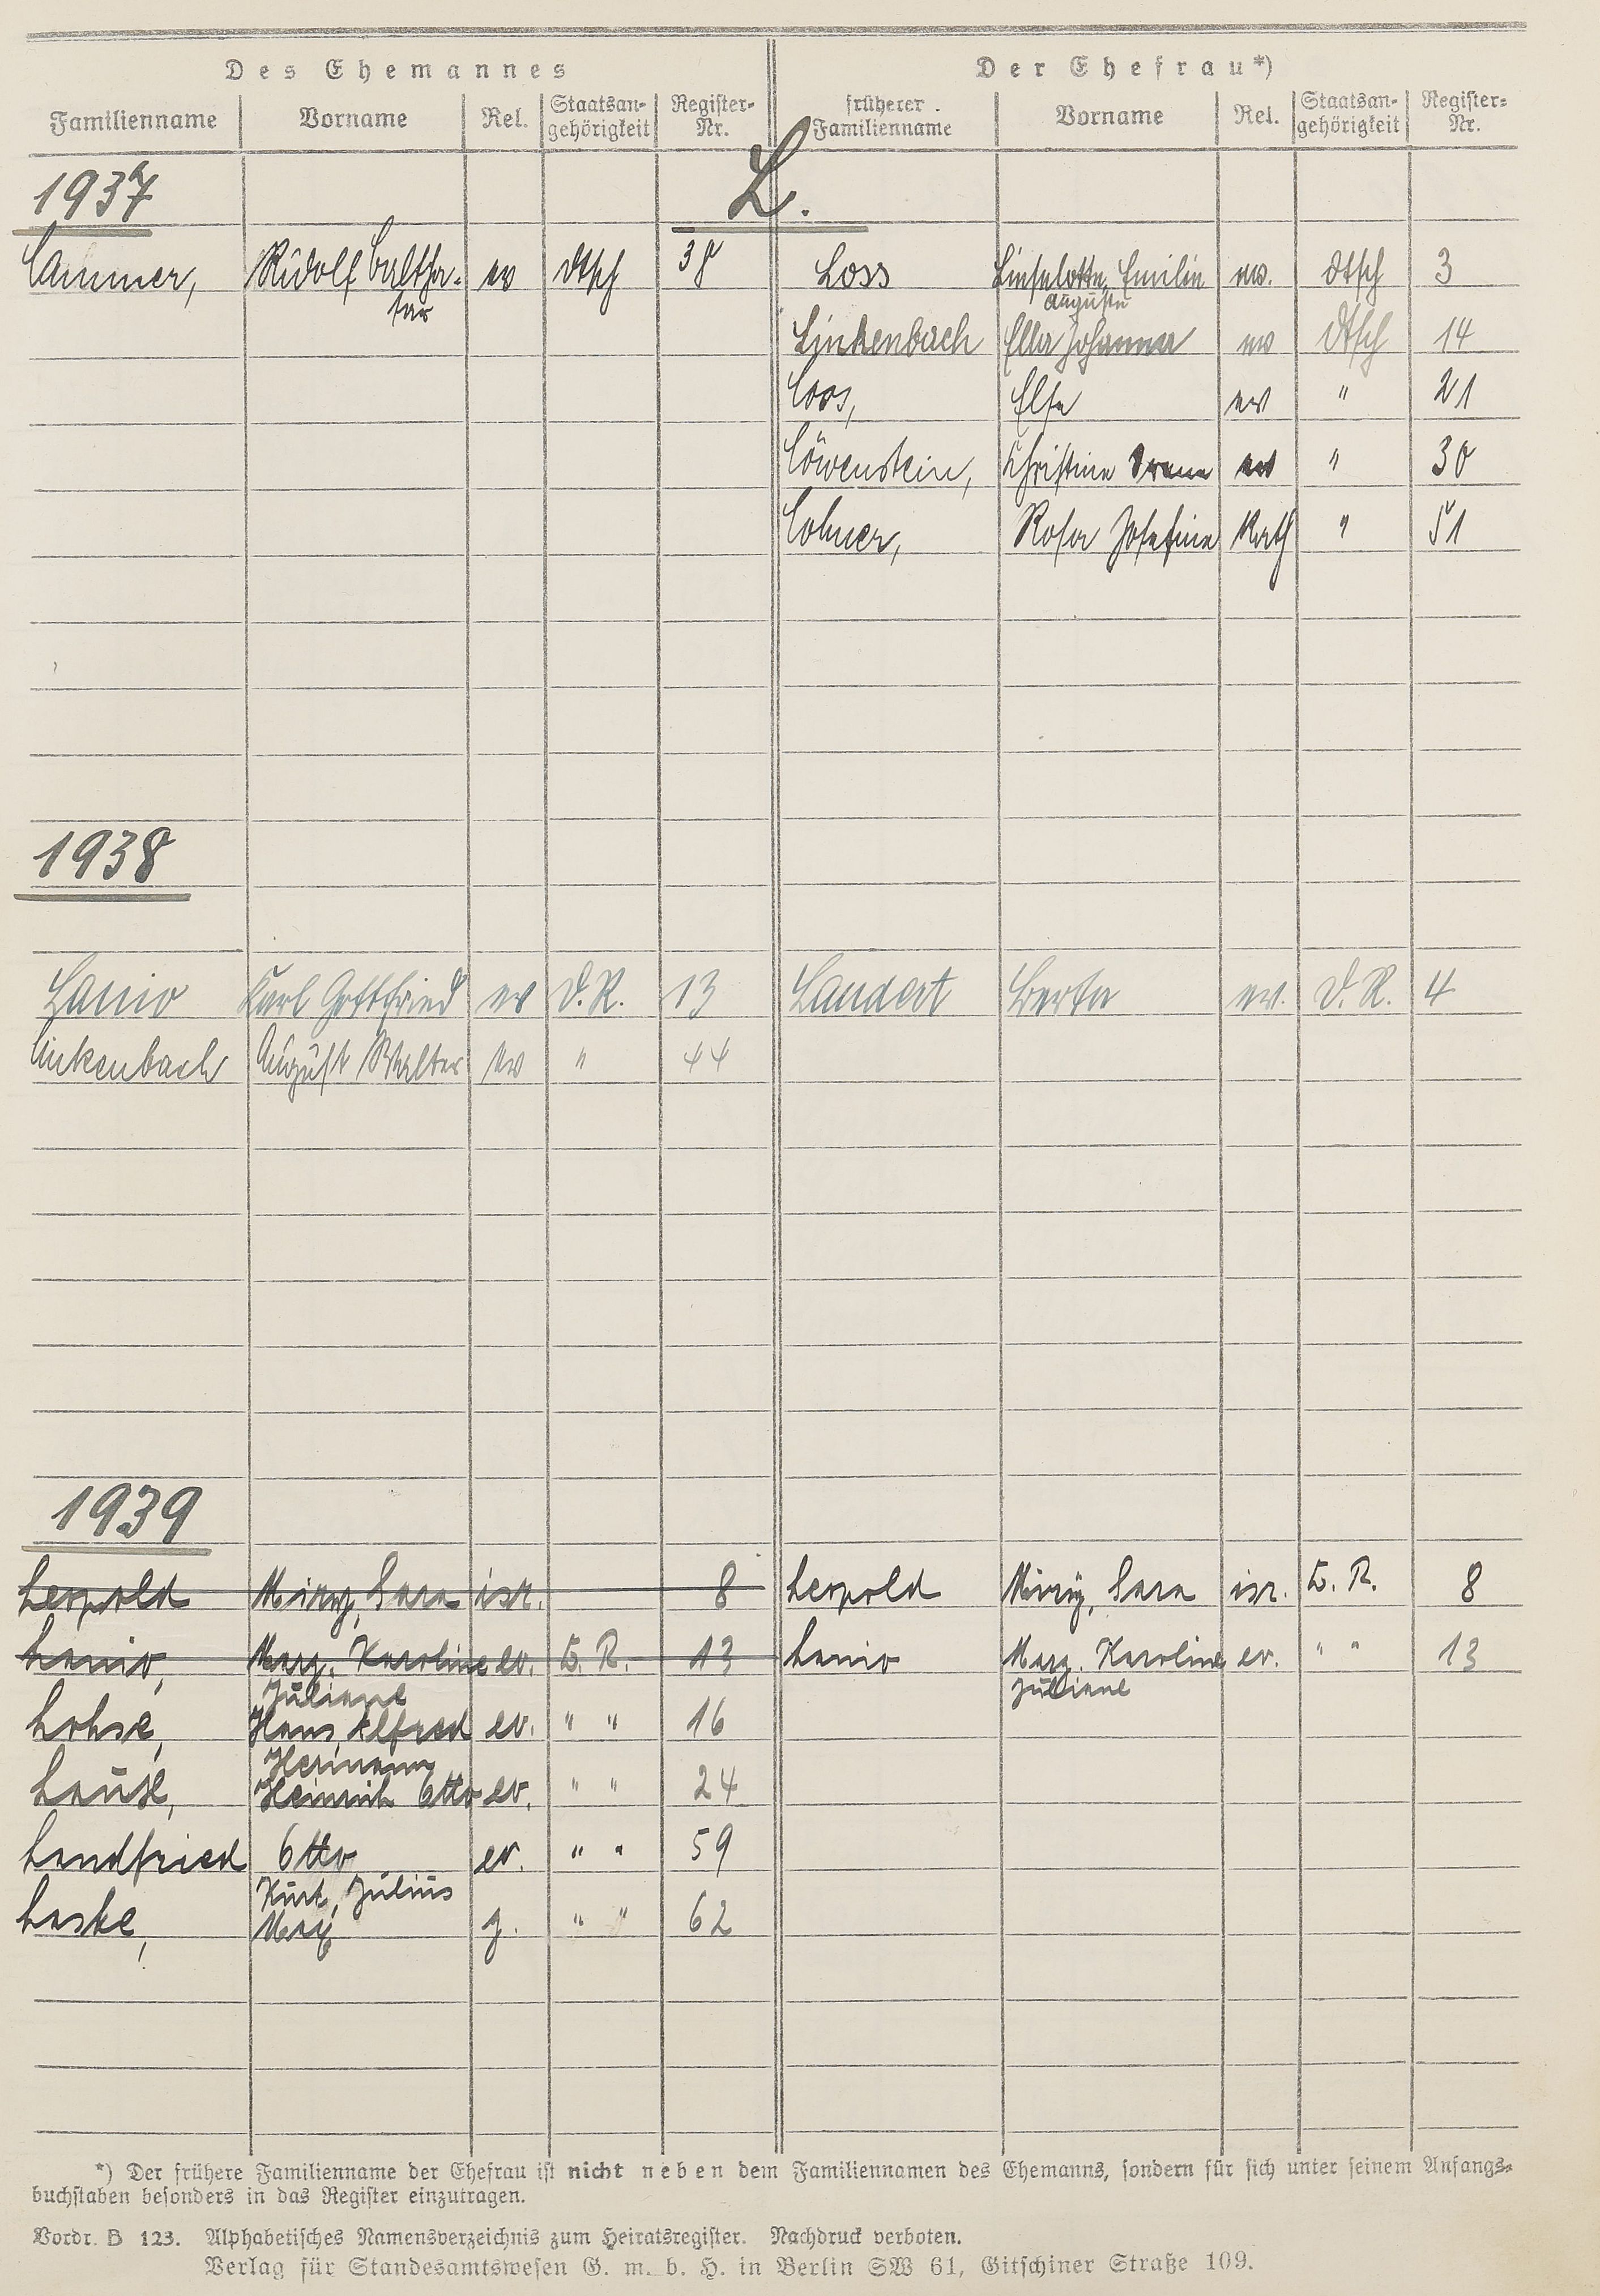 Des Ehemannes Der Ehefrau*)
Familienname Vorname Rel. Staatsan-gehörigkeit Register-Nr. früherer Familienname Vorname Rel. Staatsan-gehörigkeit Register-Nr.
1937 L.
Lammer, Rudolf Baltha- ev dtsch 38 Loss Lieselotte, Emilie ev. dtsch 3
sar Auguste
Linkenbach Ella Johanna ev dtsch 14
Loos, Else ev " 21
Löwenstein, Christine Irene ev " 30
Lohner, Rosa Josefine Kath " 51
1938
Lanio Karl Gottfried ev D. R. 13 Landert Berta ev. D. R. 4
Linkenbach August Walter ev " 44
1939
Leopold Mirzy, Sara isr. 8 Leopold Mirzy, Sara isr. D. R. 8
Lanio, Marg. Karoline ev. D. R. 13 Lanio Marg. Karoline ev. " " 13
Juliane Juliane
Lohse, Hans, Alfred ev. " " 16
Hermann
Lause, Heinrich Otto ev. " " 24
Landfried Otto ev. " " 59
Kurt, Julius
Laske, Max g. " " 62
*) Der frühere Familienname der Ehefrau ist nicht neben dem Familiennamen des Ehemanns, sondern für sich unter seinem Anfangs-
buchstaben besonders in das Register einzutragen.
Vordr. B 123. Alphabetisches Namensverzeichnis zum Heiratsregister. Nachdruck verboten.
Verlag für Standesamtswesen G. m. b. H. in Berlin SW 61, Gitschiner Straße 109.